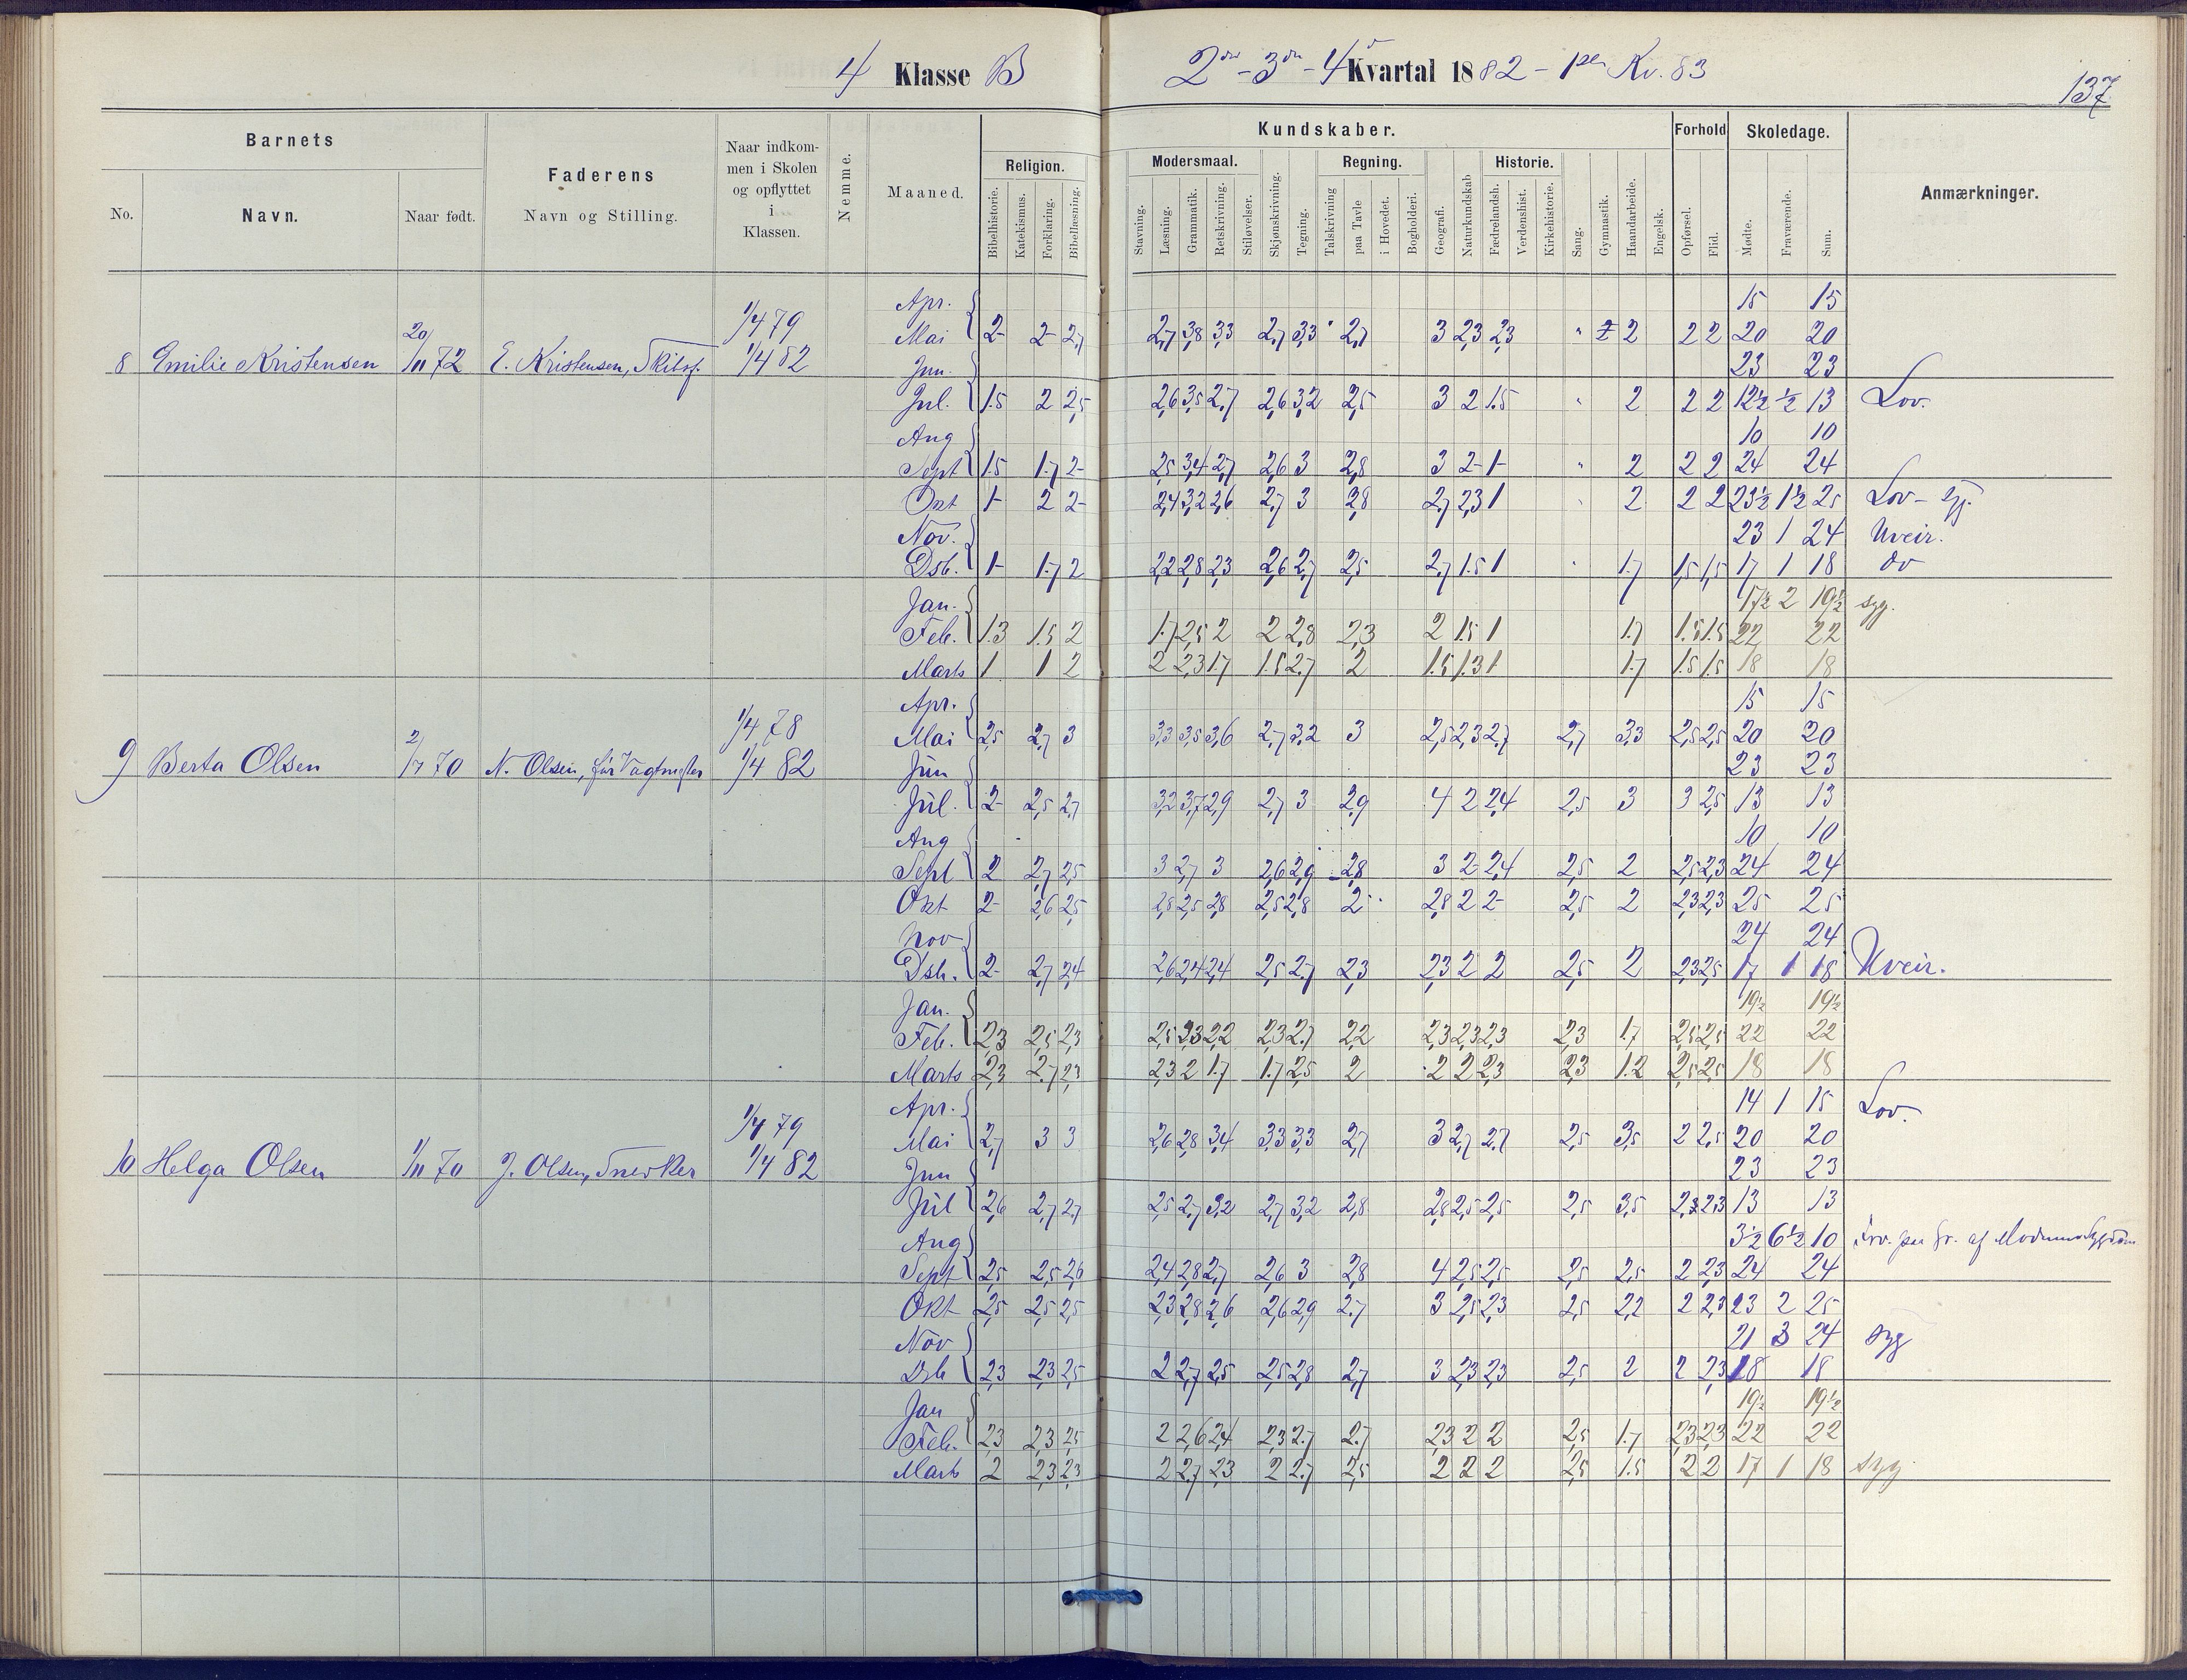 4 Klasse B
2den - 3die - 4d Kvartal 1882 - 1ste Kv. 83
137
Barnets
Faderens
Naar indkommen i Skolen og opflyttet i Klassen.
Nemme.
Maaned.
Kundskaber.
Forhold
Skoledage.
Anmærkninger.
No.
Navn.
Naar født.
Navn og Stilling.
Religion.
Modersmaal.
Regning.
Historie.
Bibelhistorie. Katekismus. Forklaring. Bibellæsning.
Stavning. Læsning. Grammatik. Retskrivning. Stiløvelser. Skjønskrivning. Tegning. Talskrivning paa Tavle i Hovedet. Bogholderi. Geografi. Naturkundskab Fædrelandsh. Verdenshist. Kirkehistorie. Sang. Gymnastik. Haandarbeide. Engelsk. Opførsel. Flid. Mødte. Fraværende. Sum.
Apr. 15 15
1/4 79 Mai 2- 2- 2,7 2,7 3,8 3,3 2,7 3,3 2,7 3 2,3 2,3 2 2 2 20 20
8 Emilie Kristensen 20/11 72 E. Kristensen, 1/4 82 Jun. 23 23
Jul. 1.5 2 2,5 2,6 3,5 2,7 2,6 3,2 2,5 3 2 1.5 2 2 2 12½ ½ 13 Lov.
Aug 10 10
Sept 1.5 1.7 2- 2,5 3,4 2,7 2,6 3 2,8 3 2- 1- 2 2 2 24 24
Okt 1- 2 2- 2,4 3,2 2,6 2,7 3 2,8 2,7 2,3 1 2 2 2 23½ 1½ 25 Lov - syg.
Nov. 23 1 24 Uveir.
Dsb. 1- 1.7 2 2,2 2,8 2,3 2,6 2,7 2,5 2,7 1.5 1 1.7 1,5 1,5 17 1 18 do
Jan. 17½ 2 19½ syg.
Feb. 1.3 1.5 2 1.7 2,5 2 2 2,8 2,3 2 1.5 1 1.7 1.5 1.5 22 22
Marts 1 1 2 2 2,3 1.7 1.5 2.7 2 1.5 1.3 1 1.7 1.5 1.5 18 18
Apr. 15 15
1/4 78 Mai 2,5 2,7 3 3,3 3,5 3,6 2,7 3,2 3 2,5 2,3 2,7 2,7 3,3 2,5 2,5 20 20
9 Berta Olsen 2/7 70 N. Olsen, før Vagtmester 1/4 82 Jun 23 23
Jul. 2- 2,5 2,7 3,2 3,7 2,9 2,7 3 2,9 4 2 2,4 2,5 3 3 2,5 13 13
Aug 10 10
Sept 2 2,7 2,5 3 2,7 3 2,6 2,9 2,8 3 2- 2,4 2,5 2 2,5 2,3 24 24
Okt 2- 2,6 2,5 2,8 2,5 2,8 2,5 2,8 2- 2,8 2 2- 2,5 2 2,3 2,3 25 25
Nov 24 24
Dsb. 2- 2,7 2,4 2,6 2,4 2,4 2,5 2,7 2,3 2,3 2 2 2,5 2 2,3 2,5 17 1 18 Uveir.
Jan. 19½ 19½
Feb. 2,3 2,5 2,3 2,5 2,3 2,2 2,3 2,7 2,2 2,3 2,3 2,3 2,3 1.7 2,5 2,5 22 22
Marts 2,3 2.7 2,3 2,3 2 1.7 1.7 2,5 2 2 2 2,3 2,3 1.2 2,5 2,5 18 18
Apr. 14 1 15 Lov
1/4 79 Mai 2,7 3 3 2,6 2,8 3,4 3,3 3,3 2,7 3 2,7 2.7 2,5 3,5 2 2,5 20 20
10 Helga Olsen 1/11 70 J. Olsen, Snedker 1/4 82 Jun 23 23
Jul 2,6 2,7 2.7 2,5 2,7 3,2 2,7 3,2 2,8 2,8 2,5 2,5 2,5 3,5 2,3 2,3 13 13
Aug 3½ 6½ 10
Sept 2,5 2,5 2,6 2,4 2,8 2,7 2,6 3 2,8 4 2,5 2,5 2,5 2,5 2 2,3 24 24
Okt 2,5 2,5 2,5 2,3 2,8 2,6 2,6 2,9 2.7 3 2,5 2,3 2,5 2,2 2 2,3 23 2 25
Nov 21 3 24 syg
Dsb 2,3 2,3 2,5 2 2,7 2,5 2,5 2,8 2,7 3 2,3 2,3 2,5 2 2 2,3 18 18
Jan 19½ 19½
Feb. 2,3 2,3 2,5 2 2,6 2,4 2,3 2.7 2.7 2,3 2 2 2,5 1.7 2,3 2,3 22 22
Marts 2 2,3 2,3 2 2.7 2,3 2 2.7 2,5 2 2 2 2,5 1.5 2 2 17 1 18 syg